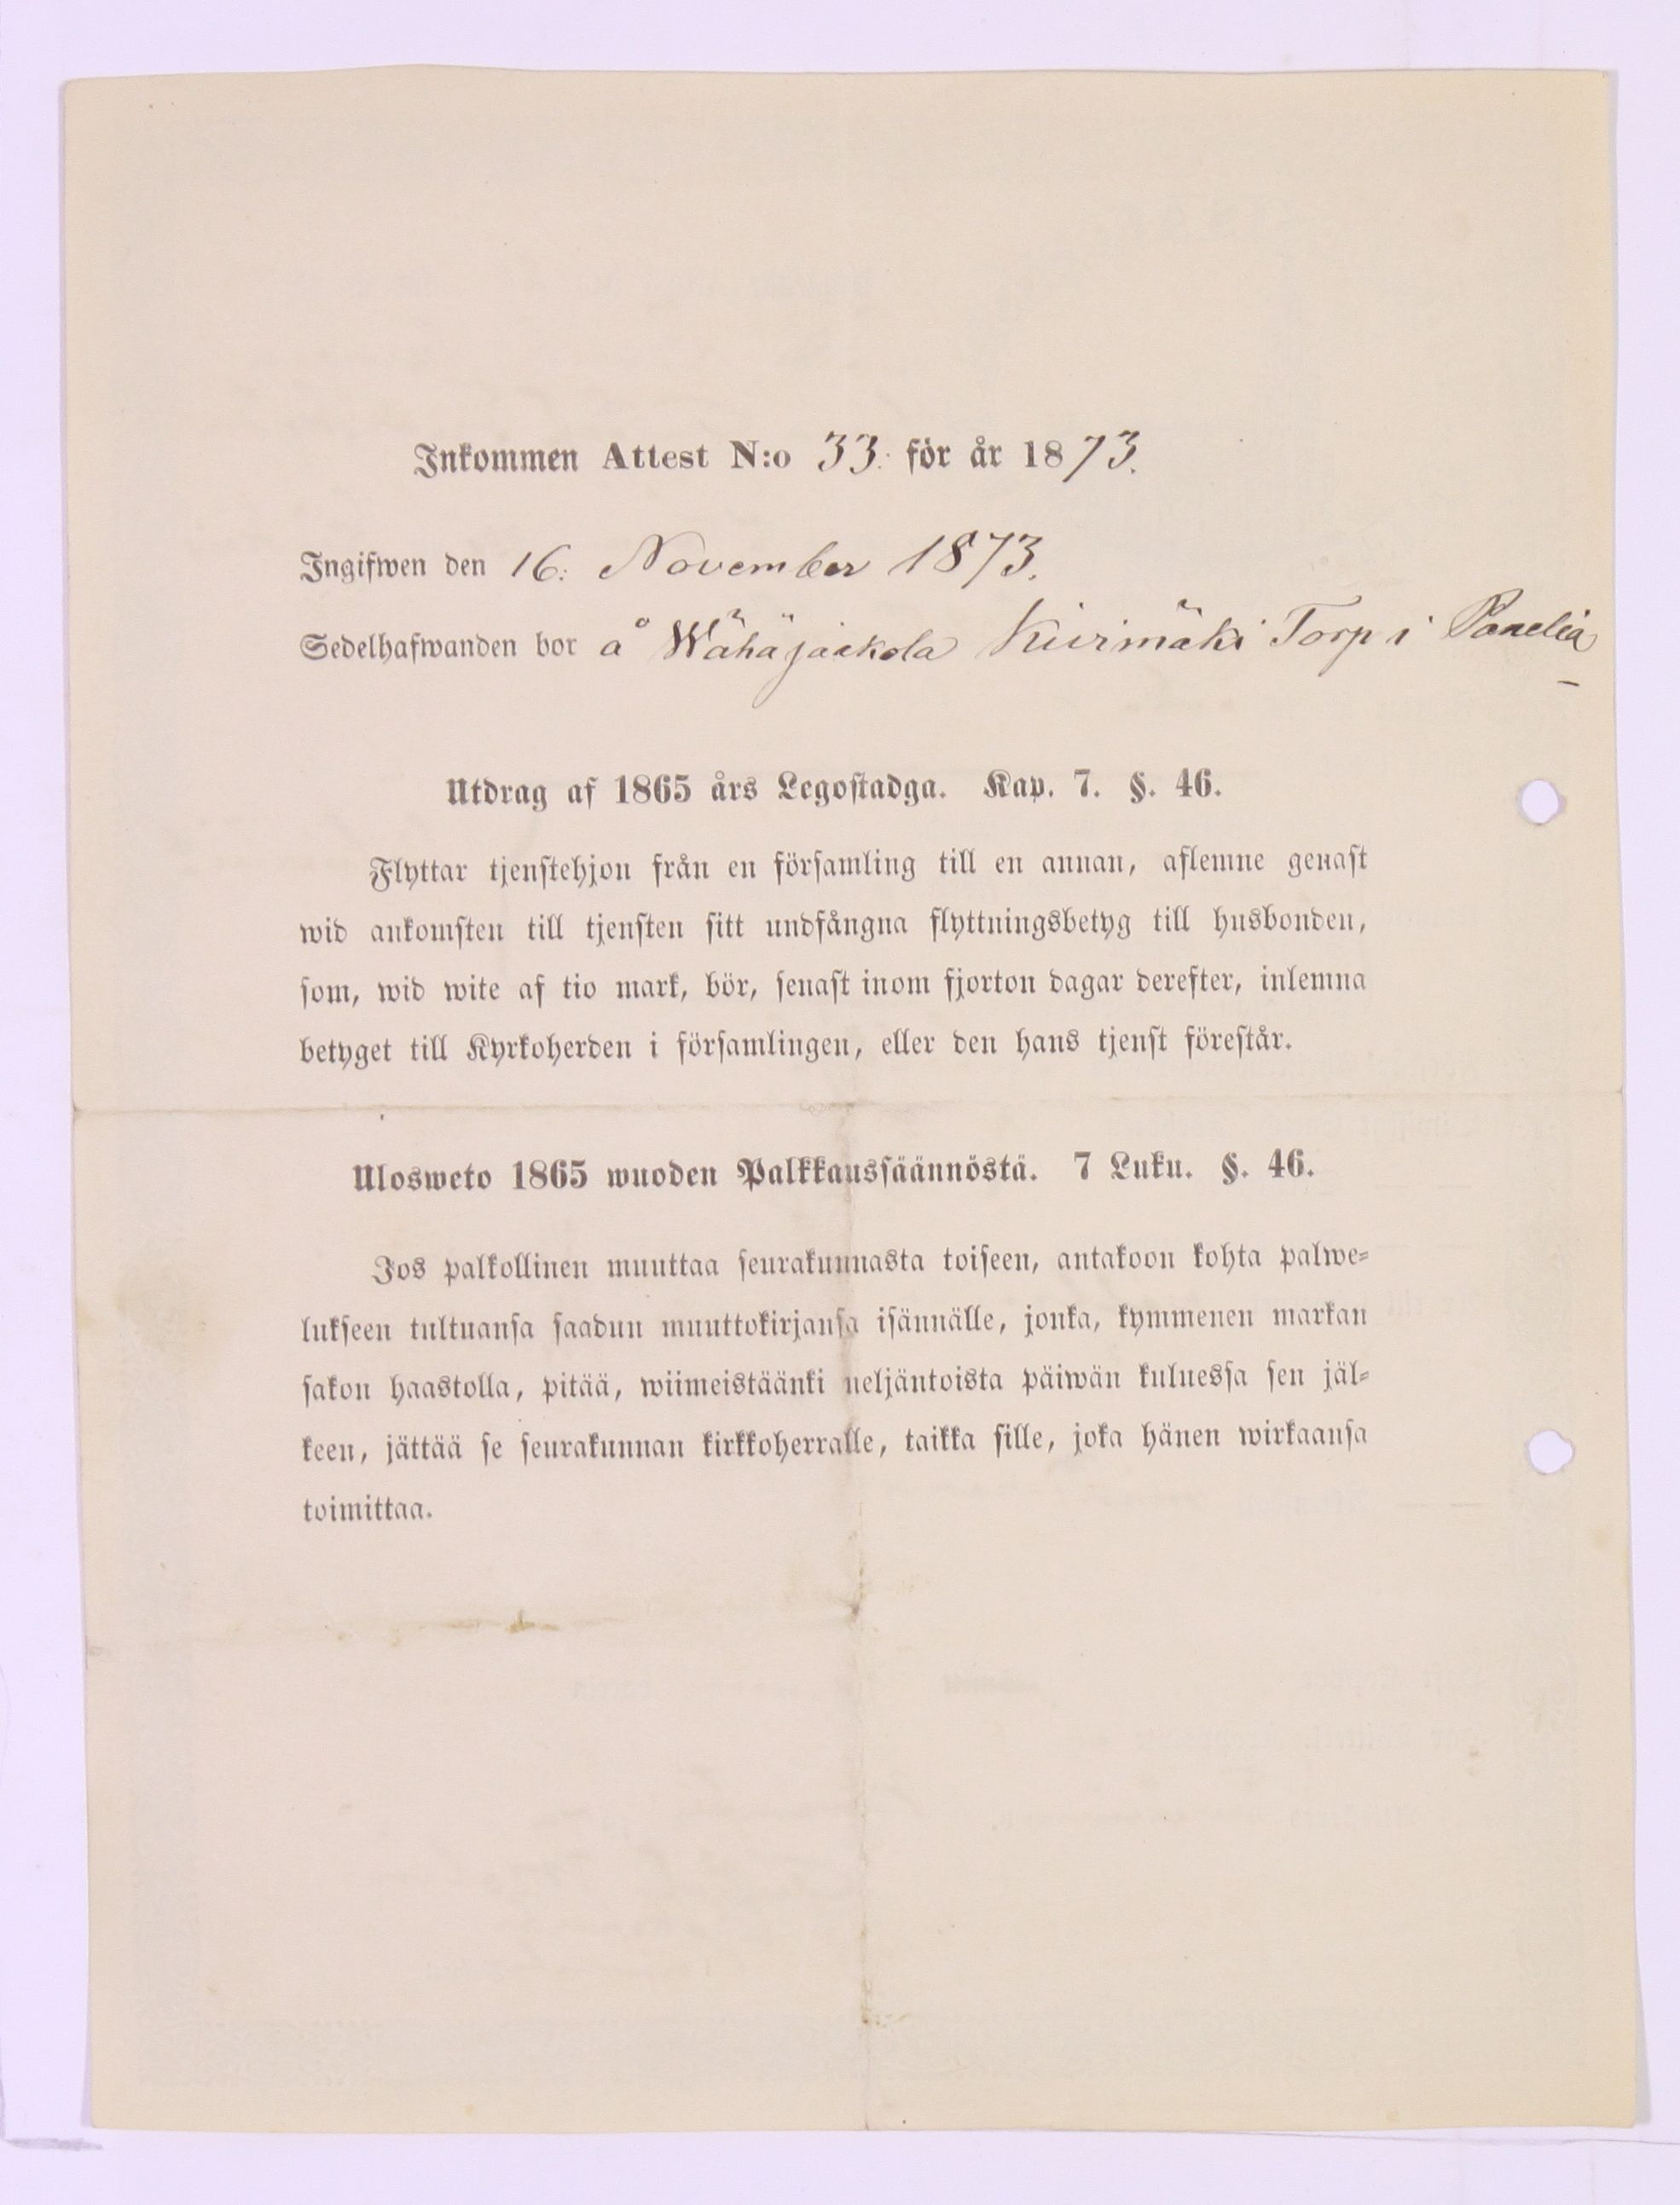 Inkommen Attest N:o 33. för år 1873.
Ingifwen den 16: November 1873.
Sedelhafwanden bor å Wähäjaakola Kivimäki Torp i Panelia
Utdrag af 1865 års Legostadga. Kap. 7. §. 46.
Flyttar tjenstehjon från en församling till en annan, aflemne genast
wid ankomsten till tjensten sitt undfångna flyttningsbetyg till husbonden,
som, wid wite af tio mark, bör, senast inom fjorton dagar derefter, inlemna
betyget till Kyrkoherden i församlingen, eller den hans tjenst förestår.
Ulosweto 1865 wuoden Palkkaussäännöstä. 7 Luku. §. 46.
Jos palkollinen muuttaa seurakunnasta toiseen, antakoon kohta palwe=
lukseen tultuansa saadun muuttokirjansa isännälle, jonka, kymmenen markan
sakon haastolla, pitää, wiimeistäänki neljäntoista päiwän kuluessa sen jäl=
keen, jättää se seurakunnan kirkkoherralle, taikka sille, joka hänen wirkaansa
toimittaa.